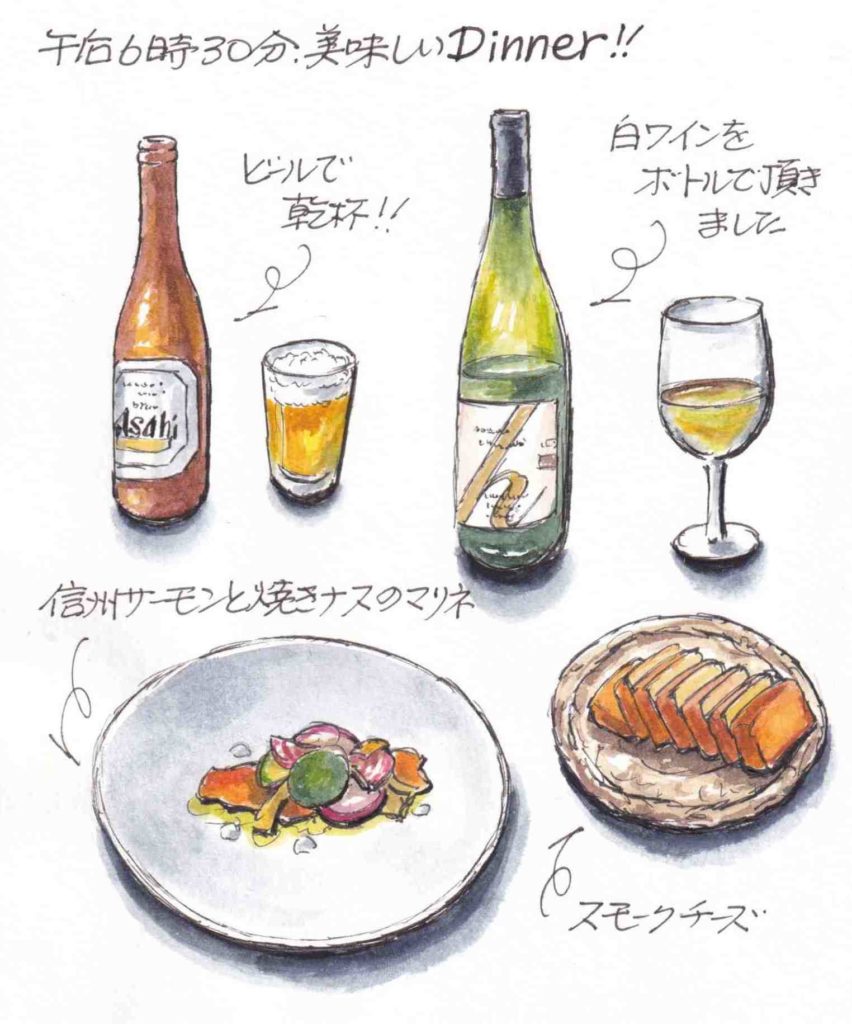 午后6時30分.美味しいDinner!!
ビールで
乾杯!!
白ワインを
ボトルで頂き
ました
Asahi
信州サーモンと焼きナスのマリネ
スモークチーズ